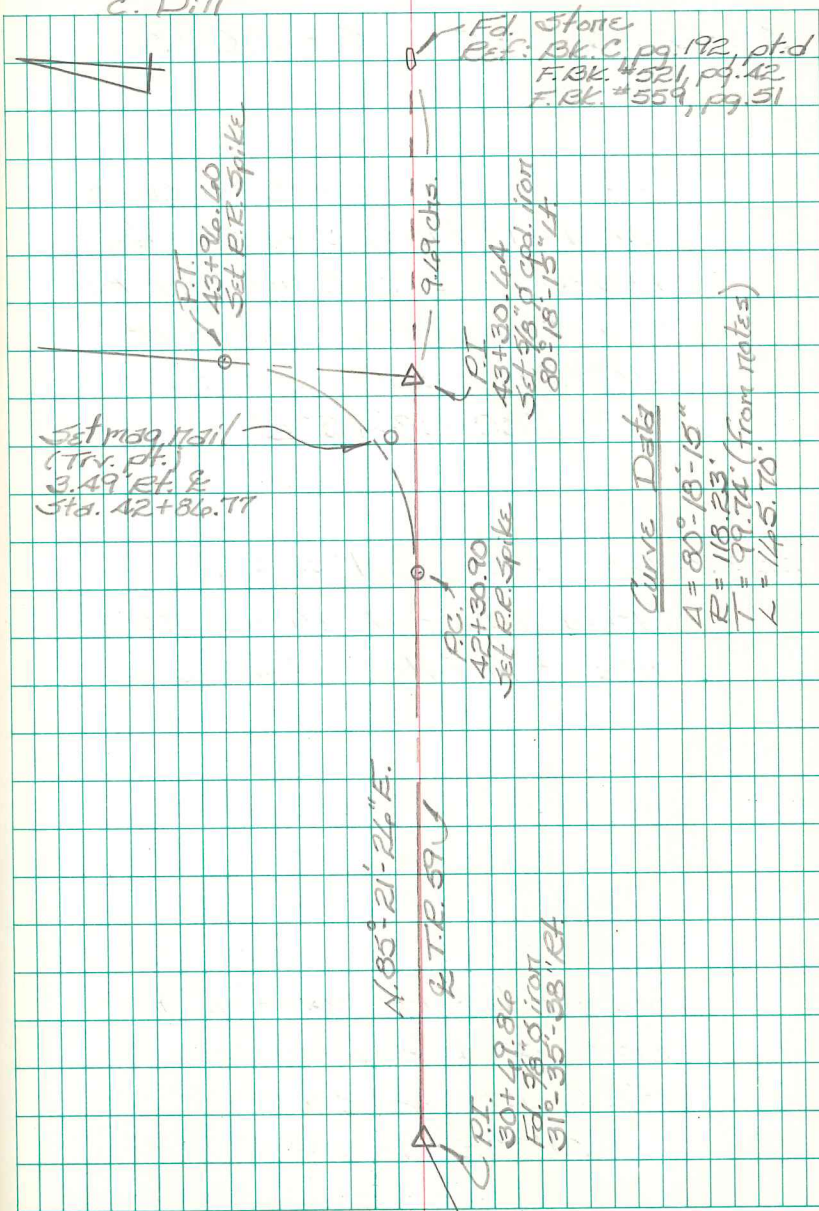 C. Dill
Fd. Stone
Ref: BK. C, pg. 192, pt. d
F. BK. #521, pg. 42
F. BK. #559, pg. 51
P.T.
43+96.60
Set R.R. Spike
9.69 chs.
P.I.
43+30.64
Set 5/8" ø cpd. iron
80°-18'-15" Lt.
Set mag nail
(Trv. pt.)
3.49' Rt. ℄
Sta. 42+86.77
P.C.
42+30.90
Set R.R. Spike
Curve Data
Δ = 80°-18'-15"
R = 118.23'
T = 99.74' (from notes)
L = 165.70'
N. 85°-21'-26" E.
℄ T.R. 59
P.I.
30+69.86
Fd. 5/8" ø iron
31°-35'-38" Rt.